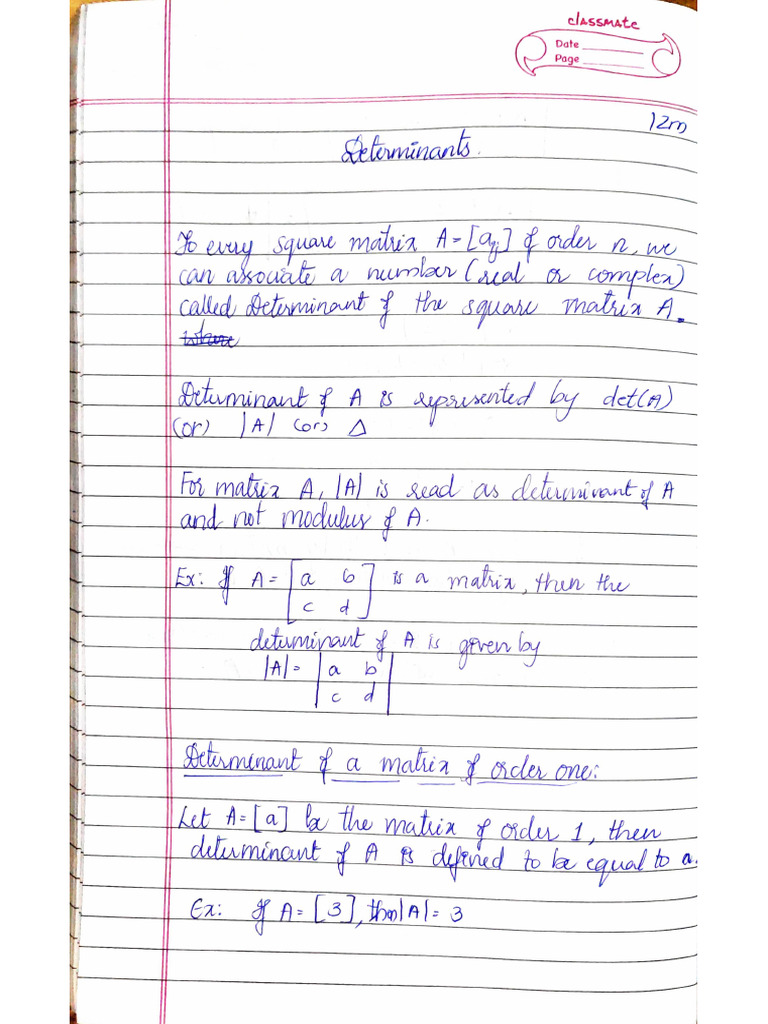 classmate
Date
Page
12m
Determinants.
To every square matrix A = [aij] of order n, we
can associate a number (real or complex)
called Determinant of the square matrix A.
where
Determinant of A is represented by det(A)
(or) |A| (or) Δ
For matrix A, |A| is read as determinant of A
and not modulus of A.
Ex: If A = [a b] is a matrix, then the
[c d]
determinant of A is given by
|A| = |a b|
|c d|
Determinant of a matrix of order one:
Let A = [a] be the matrix of order 1, then
determinant of A is defined to be equal to a.
Ex: If A = [3], then |A| = 3